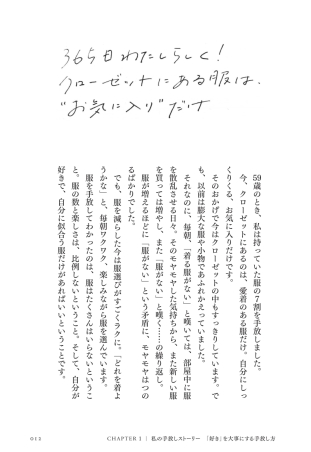 365日わたしらしく!
クローゼットにある服は、
"お気に入り"だけ
59歳のとき、私は持っていた服の7割を手放しました。
今、クローゼットにあるのは、愛着のある服だけ。自分にしっ
くりくる、お気に入りだけです。
そのおかげで今はクローゼットの中もすっきりしています。で
も、以前は膨大な服や小物であふれかえっていました。
それなのに、毎朝、「着る服がない」と嘆いては、部屋中に服
を散乱させる日々。そのモヤモヤした気持ちから、また新しい服
を買っては増やし、また「服がない」と嘆く……の繰り返し。
服が増えるほどに「服がない」という矛盾に、モヤモヤはつの
るばかりでした。
でも、服を減らした今は服選びがすごくラクに。「どれを着よ
うかな」と、毎朝ワクワク、楽しみながら服を選んでいます。
服を手放してわかったのは、服はたくさんはいらないというこ
と。服の数と楽しさは、比例しないということ。そして、自分が
好きで、自分に似合う服だけがあればいいということです。
012 CHAPTER 1 | 私の手放しストーリー 「好き」を大事にする手放し方